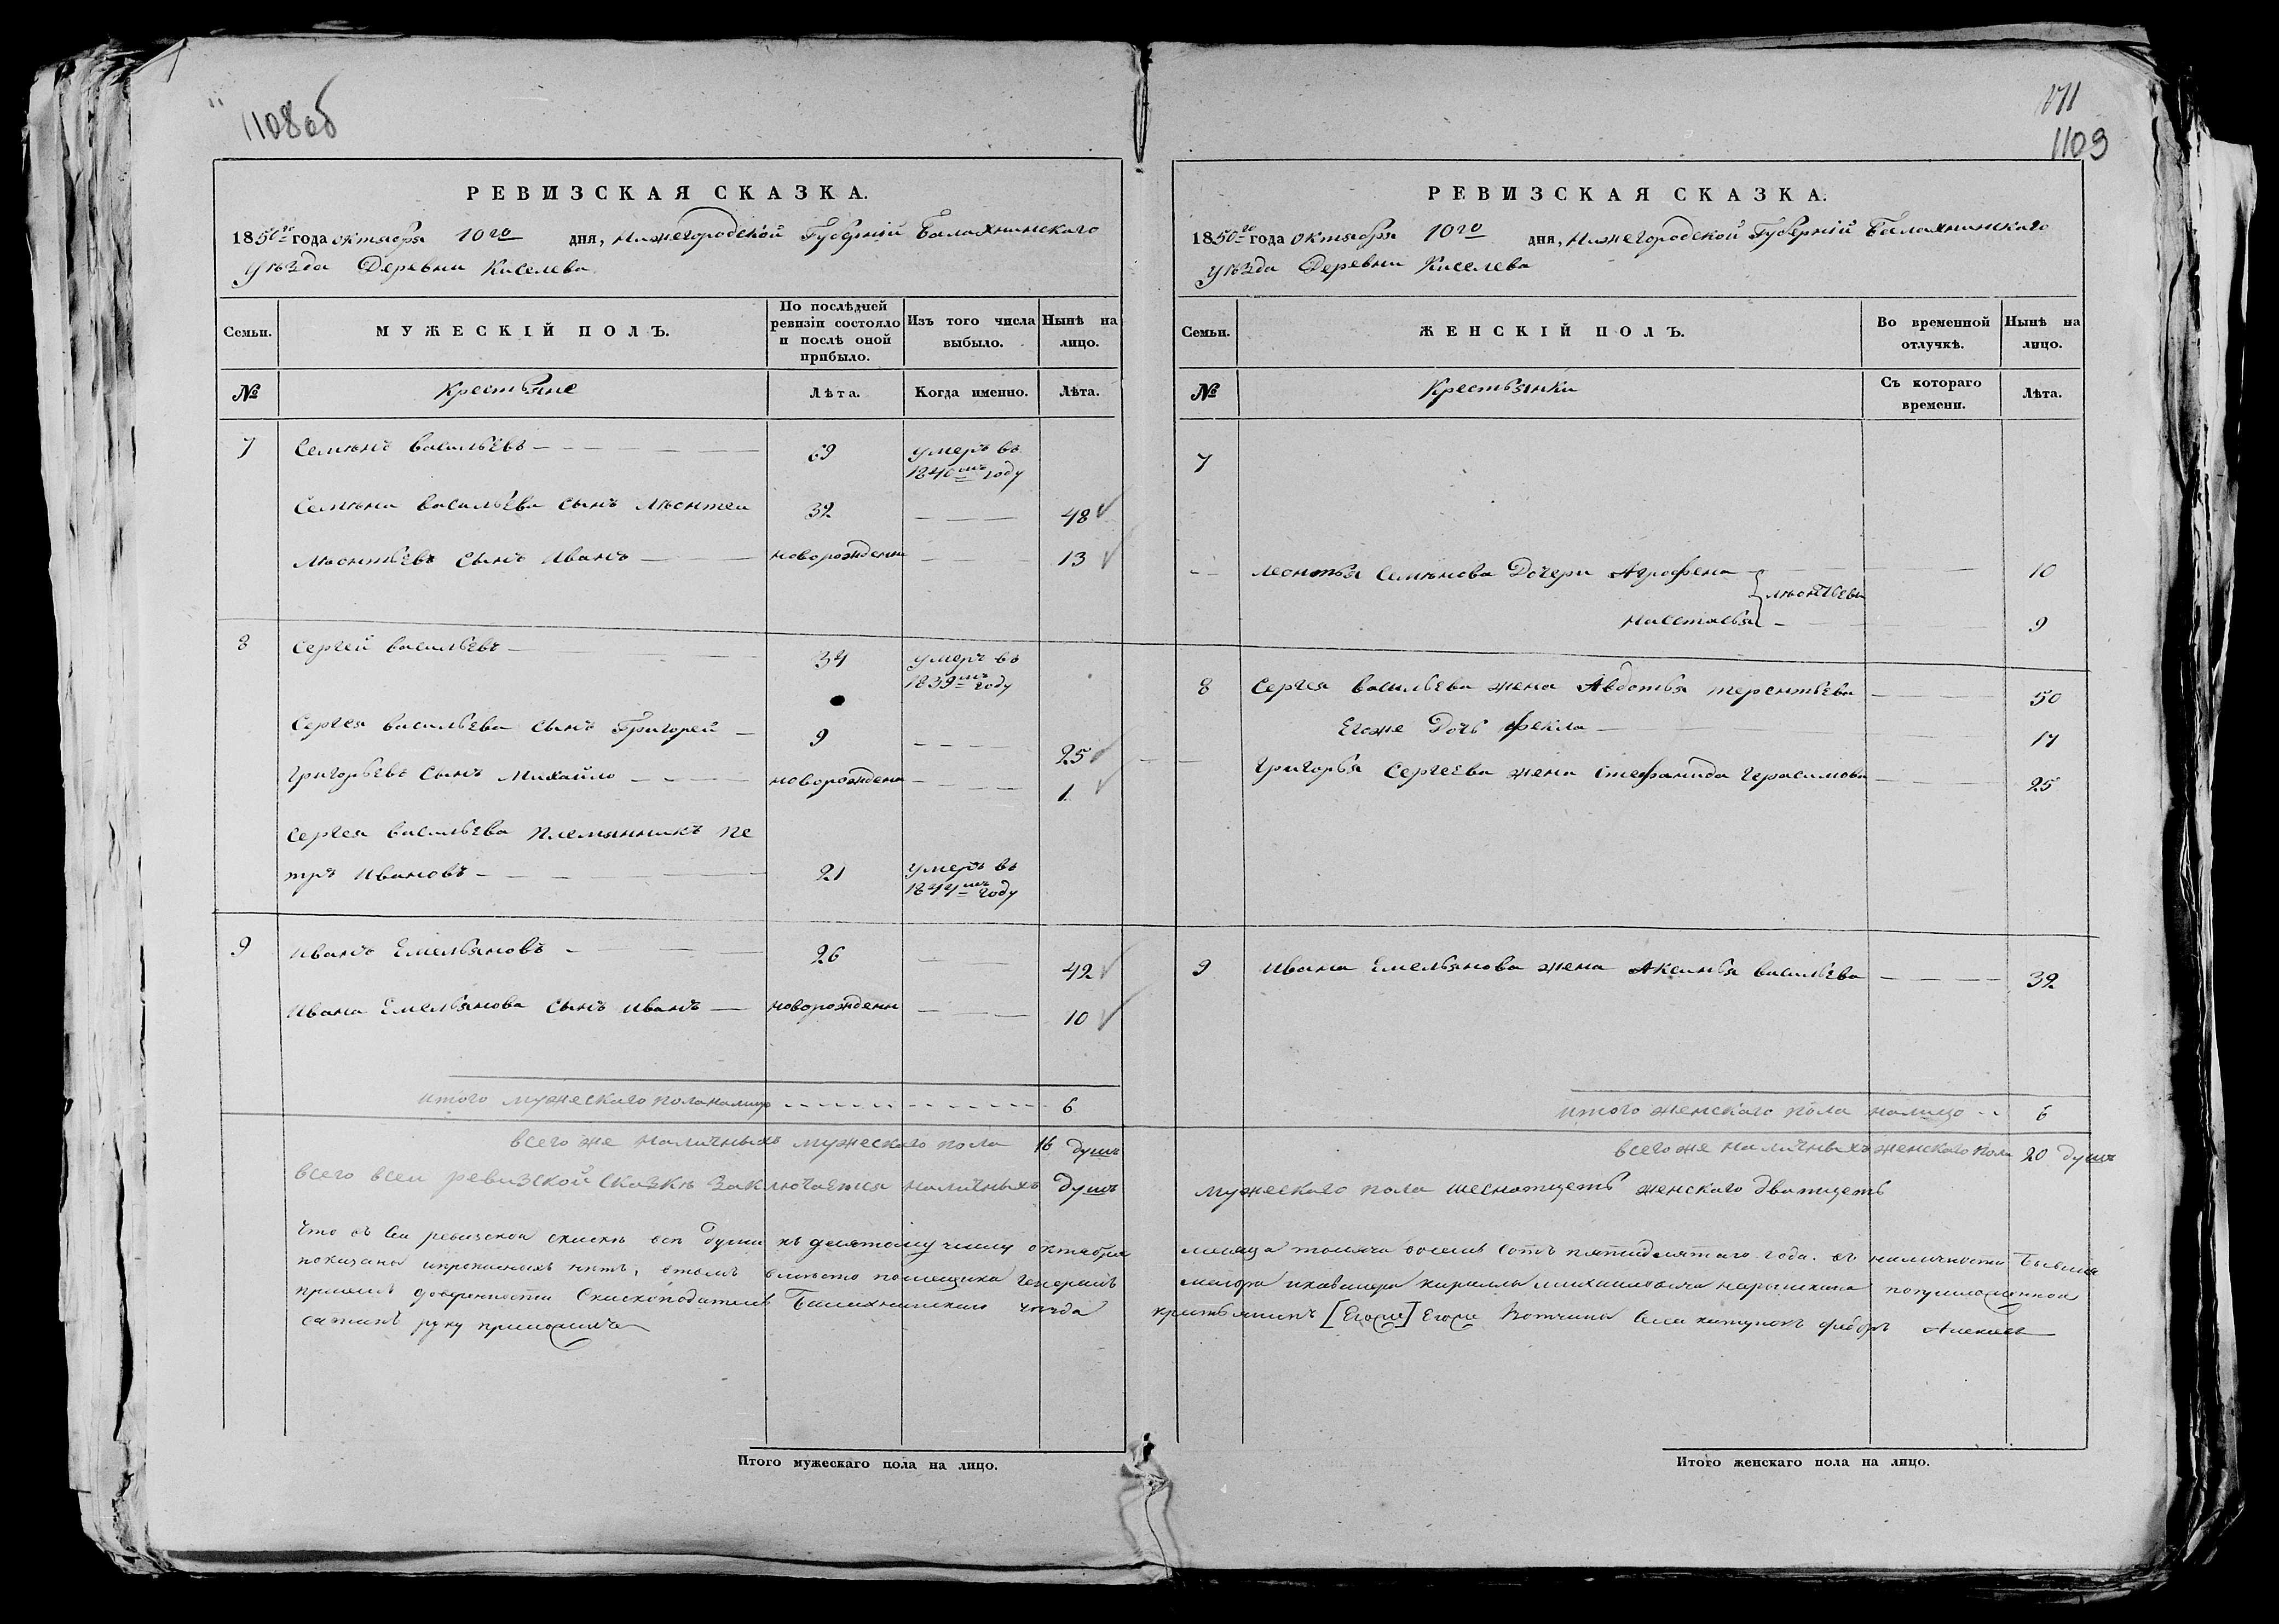 1108 об
РЕВИЗСКАЯ СКАЗКА.
1850го года октября 10го дня, Нижегородской Губерній Балахнинскаго
уѣзда Деревни Киселева
Семьи.
МУЖЕСКІЙ ПОЛЪ.
По послѣдней ревизіи состояло и послѣ оной прибыло.
Изъ того числа выбыло.
Нынѣ на лицо.
№
Крестьяне
Лѣта.
Когда именно.
Лѣта.
7 Семѣнъ васильевъ 69 умеръ въ
1840мъ году
Семѣна васильева сынъ Лѣонтеи 32 48
Лѣонтьевъ сынъ Иванъ новорожденн 13
8 Сергей васильевъ 34 умеръ въ
1839мъ году
Сергея васильева сынъ Григорей 9 25
Григорьевъ сынъ Михайло новорожденн 1
Сергея васильева племянникъ Пе
тръ Ивановъ 21 умеръ въ
1844мъ году
9 Иванъ Емельяновъ 26 42
Ивана Емельянова сынъ Иванъ новорожденн 10
итого мужескаго пола налицо 6
всего же наличныхъ мужескаго пола 16 душъ
всего всеи ревизской сказкѣ заключается наличныхъ душъ
что въ сеи ревизской скаскѣ всѣ души къ десятому числу октября
показаны и прописныхъ нѣтъ, втомъ вместо помещика генералъ
приемъ доверенности Скаскоподатель Балахнинскаго уѣзда
руку приложилъ
1711
1109
РЕВИЗСКАЯ СКАЗКА.
1850го года октября 10го дня, Нижегородской Губерній Балахнинскаго
уѣзда Деревни Киселева
Семьи.
ЖЕНСКІЙ ПОЛЪ.
Во временной отлучкѣ.
Нынѣ на лицо.
№
Крестьянки
Съ котораго времени.
Лѣта.
7
Леонтья Семѣнова Дочери Агрофена 10
Лѣонтьевы
Настасья 9
8 Сергея васильева жена Авдотья терентьева 50
Егоже Дочь Фекла 17
Григорья Сергеева жена Стефанида Герасимова 25
9 Ивана Емельянова жена Аксинья васильева 32
итого женскаго пола налицо 6
всего же наличныхъ женскаго пола 20 душъ
мужескаго пола шеснатцеть женскаго дватцеть
месяца тысяча восемь сотъ пятидесятаго года. въ наличности
маиора икавалера кирилы михаиловича нарышкина
крестьянинъ [Егоже] Егоже Вотчины Села Федоръ Алексеевъ
Итого мужескаго пола на лицо.
Итого женскаго пола на лицо.